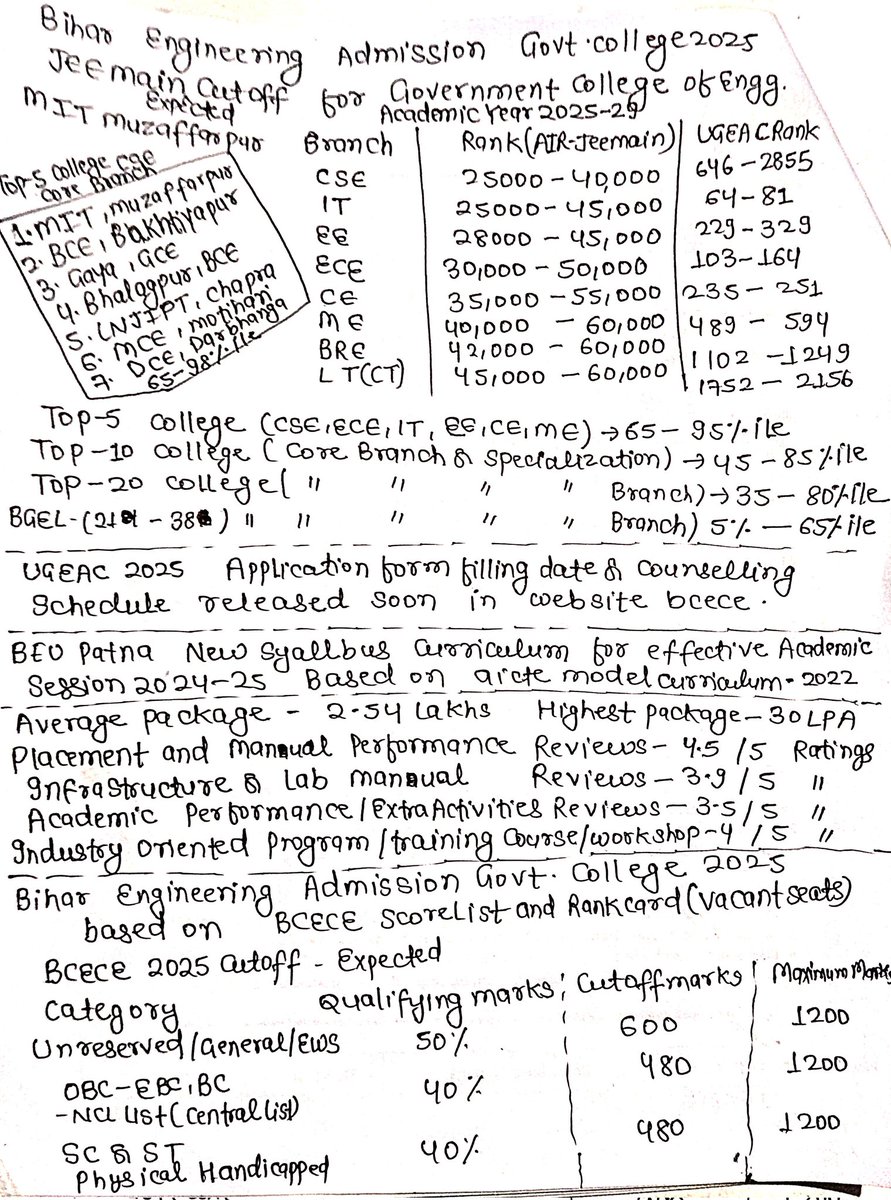 Bihar Engineering Admission Govt. college 2025
JEE main Cut off for Government College of Engg.
Expected Academic Year 2025-29
MIT muzaffarpur
Branch Rank (AIR-Jeemain) UGEAC Rank
CSE 25000 - 40,000 646 - 2855
IT 25000 - 45,000 64 - 81
EE 28000 - 45,000 229 - 329
ECE 30,000 - 50,000 103 - 164
CE 35,000 - 55,000 235 - 251
ME 40,000 - 60,000 489 - 594
BRE 42,000 - 60,000 1102 - 1249
LT(CT) 45,000 - 60,000 1752 - 2156
Top-5 college CSE
Core Branch
1. MIT, muzaffarpur
2. BCE, Bakhtiyapur
3. Gaya, GCE
4. Bhalagpur, BCE
5. LNJIPT, Chapra
6. MCE, motihari
7. DCE, Darbhanga
65-98%ile
Top-5 college (CSE, ECE, IT, EE, CE, ME) → 65 - 95%ile
Top-10 college (Core Branch & Specialization) → 45 - 85%ile
Top-20 college ( " " " " Branch) → 35 - 80%ile
BGEL - (21 - 38) " " " " " Branch) 5% - 65%ile
UGEAC 2025 Application form filling date & counselling
Schedule released soon in website bcece.
BEU Patna New Syallbus Curriculum for effective Academic
Session 2024-25 Based on aicte model curriculum - 2022
Average package - 2.54 Lakhs Highest package - 30 LPA
Placement and mannual Performance Reviews - 4.5 /5 Ratings
Infrastructure & Lab mannual Reviews - 3.9 /5 "
Academic Performance/Extra Activities Reviews - 3.5/5 "
Industry oriented Program/training Course/workshop - 4 /5 "
Bihar Engineering Admission Govt. College 2025
based on BCECE Scorelist and Rankcard (vacant seats)
BCECE 2025 Cutoff - Expected
Category Qualifying marks Cutaffmarks Maximum Marks
Unreserved/General/EWS 50% 600 1200
OBC - EBC, BC 40% 480 1200
- NCL List (Central List)
SC & ST 40% 480 1200
Physical Handicapped